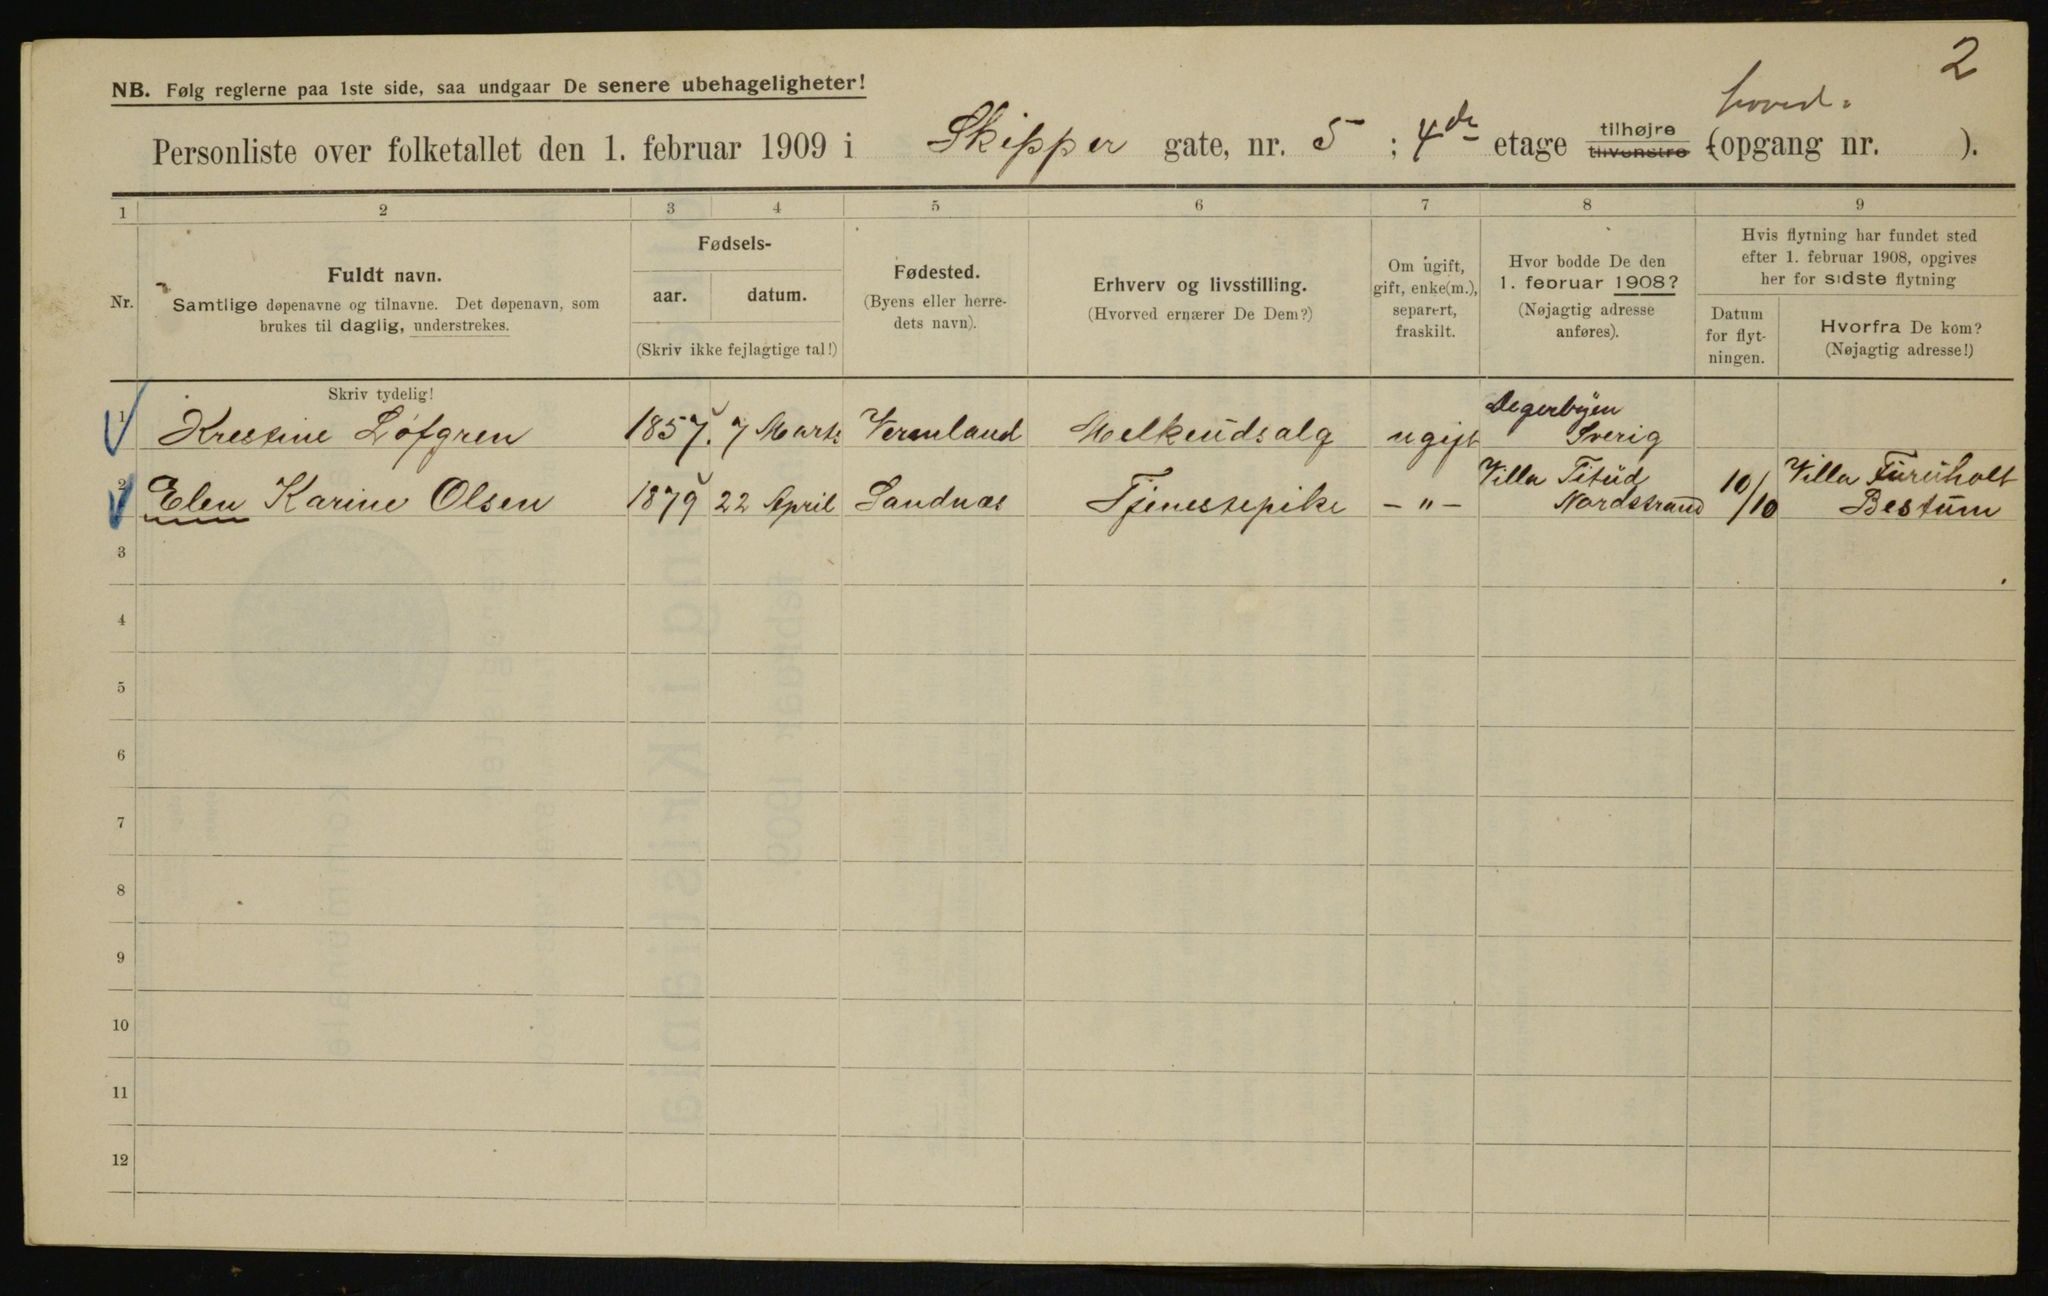 2
NB. Følg reglerne paa 1ste side, saa undgaar De senere ubehageligheter!
hoved-
Personliste over folketallet den 1. februar 1909 i Skipper gate, nr. 5 ; 4de etage tilhøjre tilvenstre (opgang nr. ).
1 2 3 4 5 6 7 8 9
Nr.
Fuldt navn.
Samtlige døpenavne og tilnavne. Det døpenavn, som
brukes til daglig, understrekes.
Fødsels-
aar. datum.
(Skriv ikke fejlagtige tal!)
Fødested.
(Byens eller herre-
dets navn).
Erhverv og livsstilling.
(Hvorved ernærer De Dem?)
Om ugift,
gift, enke(m.),
separert,
fraskilt.
Hvor bodde De den
1. februar 1908?
(Nøjagtig adresse
anføres).
Hvis flytning har fundet sted
efter 1. februar 1908, opgives
her for sidste flytning
Datum
for flyt-
ningen.
Hvorfra De kom?
(Nøjagtig adresse!)
Skriv tydelig!
1 Krestine Löfgren 1857. 7 Marts Vermland Melkeudsalg ugift Degerbyen
Sverig
2 Elen Karine Olsen 1879 22 April Sandnæs Tjenestepike — " — Villa
Nordstrand 10/10 Villa Furuholt
Bestum
3
4
5
6
7
8
9
10
11
12